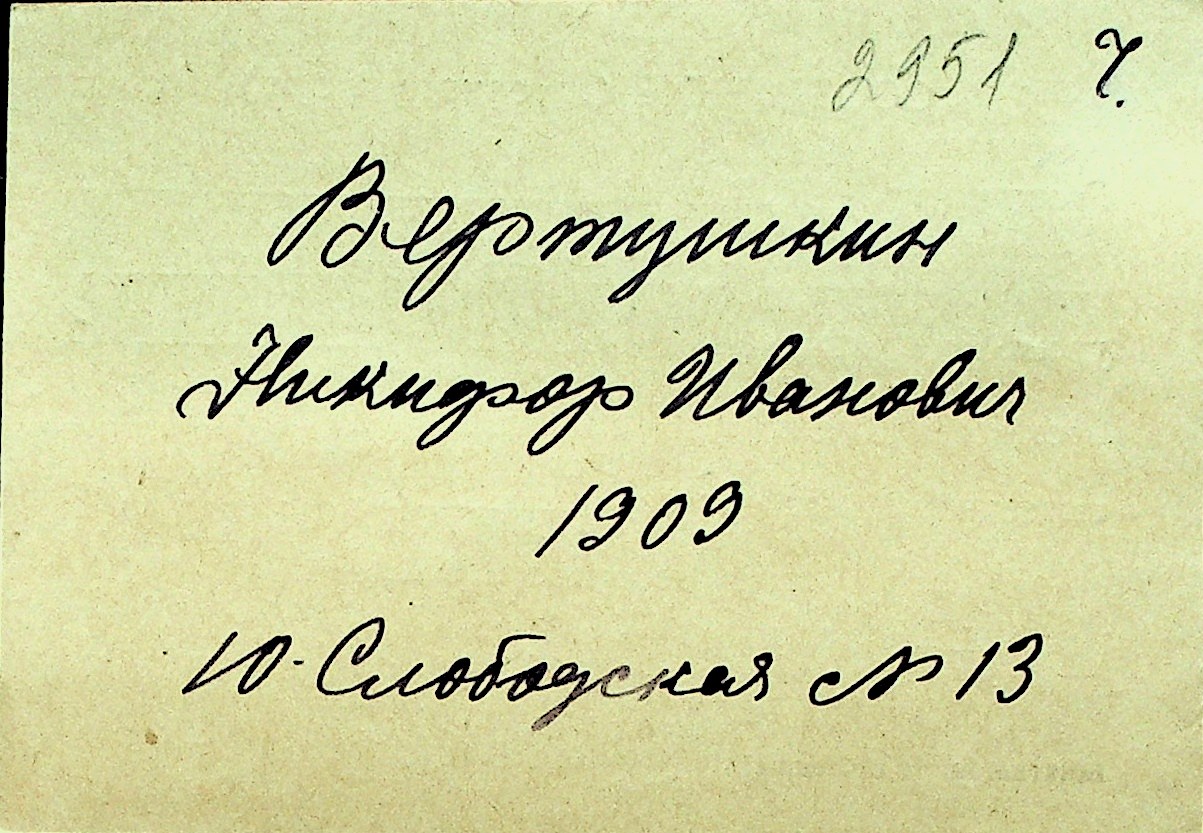 2951 Ч.
Вертушкин
Никифор Иванович
1909
Ю-Слободская № 13